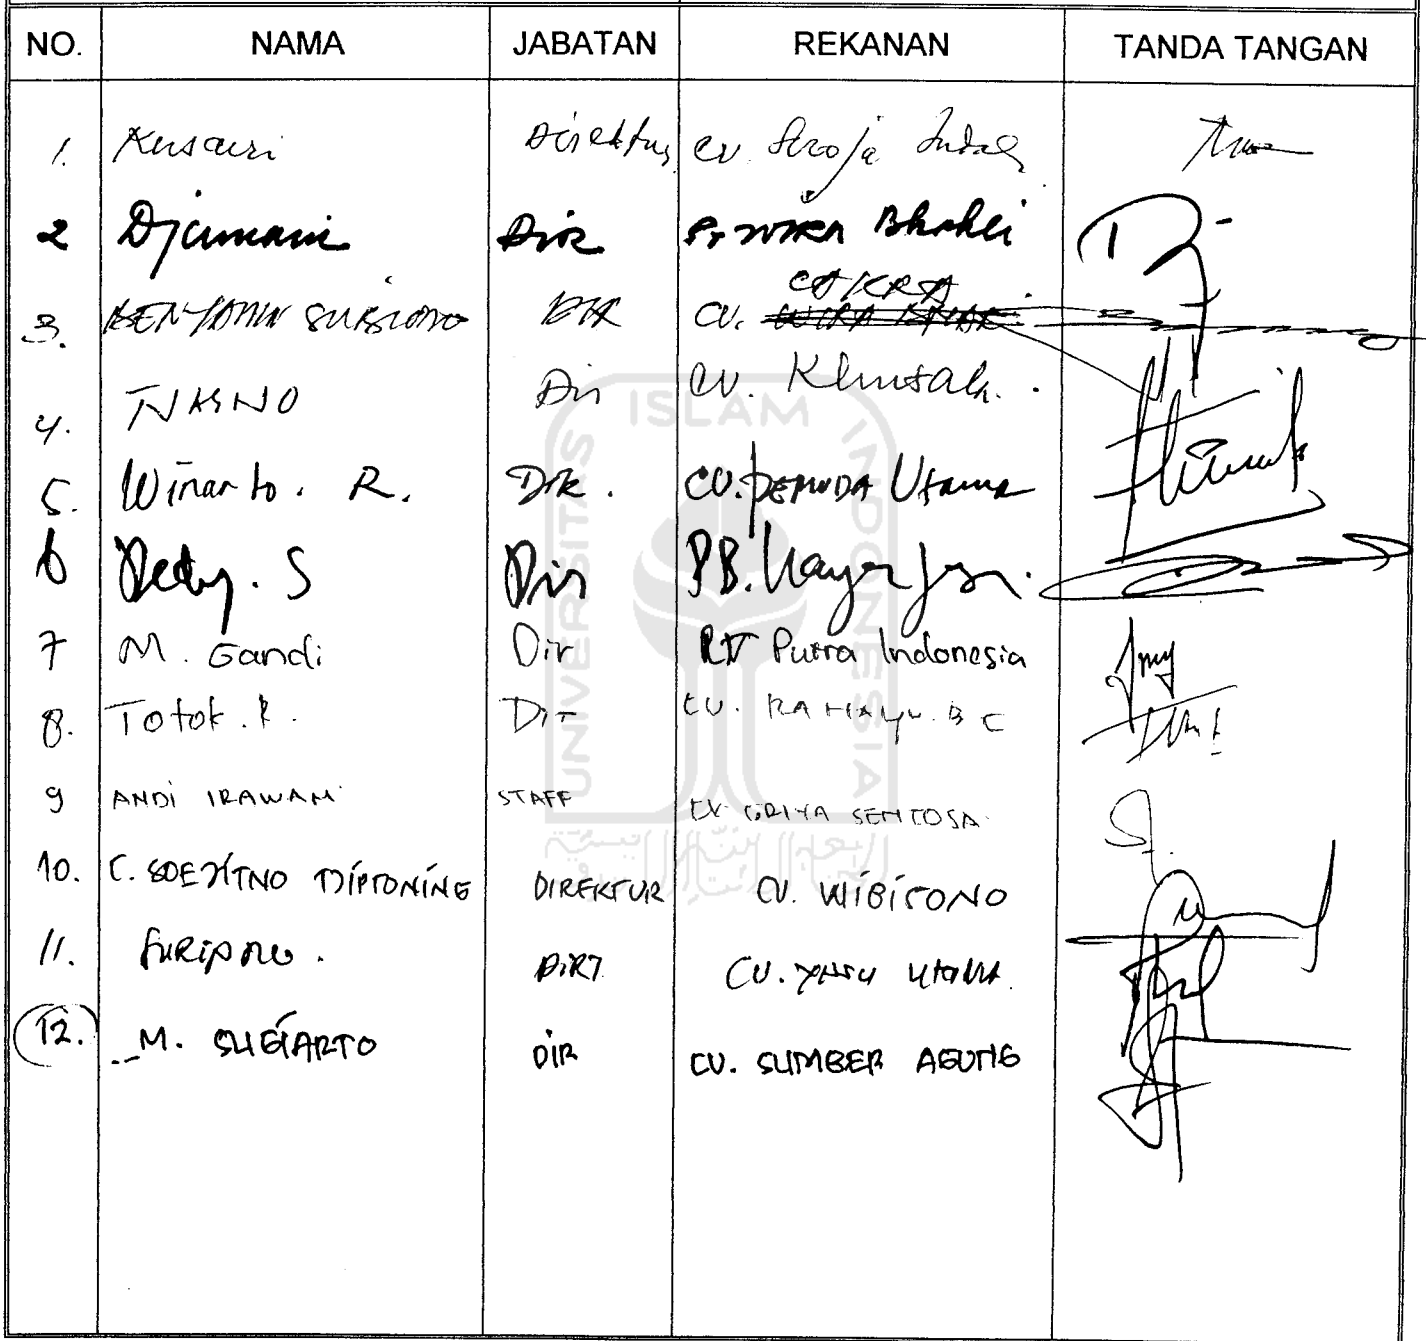 NO. NAMA JABATAN REKANAN TANDA TANGAN
1. Kusairi Direktur CV. Seroja Indah
2 Djumani Dir PT WIRA Bhakti
3. BENYAMIN SUBIONO DIR CV. CAKRA
4. Dir CV. Khusah.
5. Winarto. R. DIR. CV. PEMUDA Utama
6 Dedy. S Dir PB.
7 M. Gandi Dir PT Putra Indonesia
8. Totok. R. Dir CV. RAHAYU. B C
9 ANDI IRAWAN STAFF CV GRIYA SENTOSA
10. C. DIREKTUR CV. WIBISONO
11. SURIPNO. DIRT CV. UTAMA
12. M. SUGIARTO DIR CV. SUMBER AGUNG
UNIVERSITAS ISLAM INDONESIA